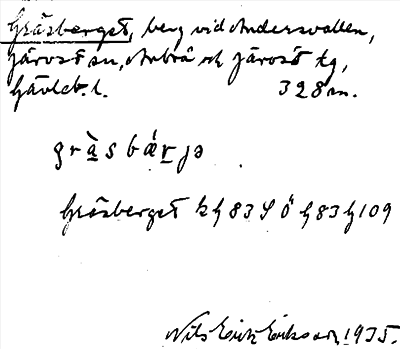 Gräsberget, berg vid Andersvallen,
Järvsö sn, Arbrå och Järvsö tg,
Gävleb. l. 328 m.
gràsbǽrjə
Gräsberget h483SÖ483h109
Nils Erik Eriksson 1935.